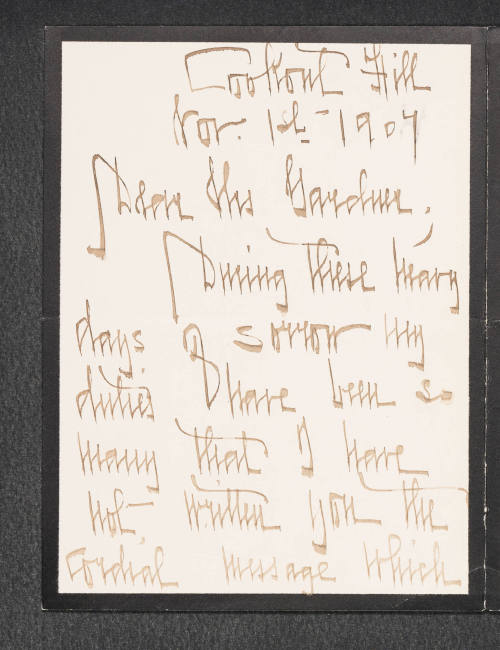 Lookout Hill
Nov. 1st - 1907
Dear Mrs Gardner.
During these many
days of sorrow my
duties have been so
many that I have
not written you the
cordial message which